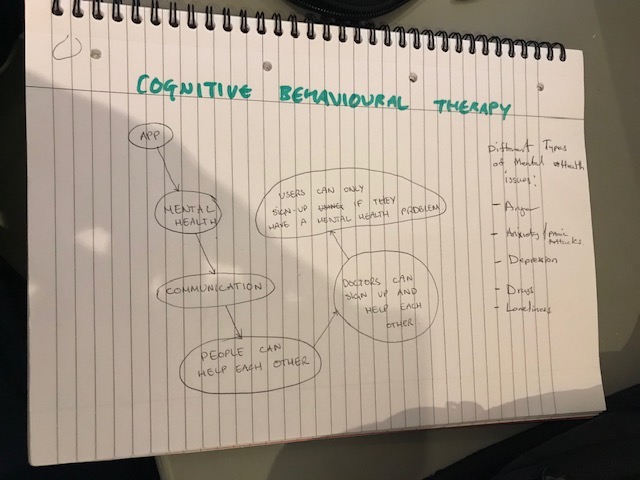 COGNITIVE BEHAVIOURAL THERAPY
APP
MENTAL
HEALTH
COMMUNICATION
PEOPLE CAN
HELP EACH OTHER
DOCTORS CAN
SIGN UP AND
HELP EACH
OTHER
USERS CAN ONLY
SIGN-UP IF THEY
HAVE A MENTAL HEALTH PROBLEM
Different Types
of Mental Health
issues:
- Anger
- Anxiety/panic
attacks
- Depression
- Drugs
- Loneliness